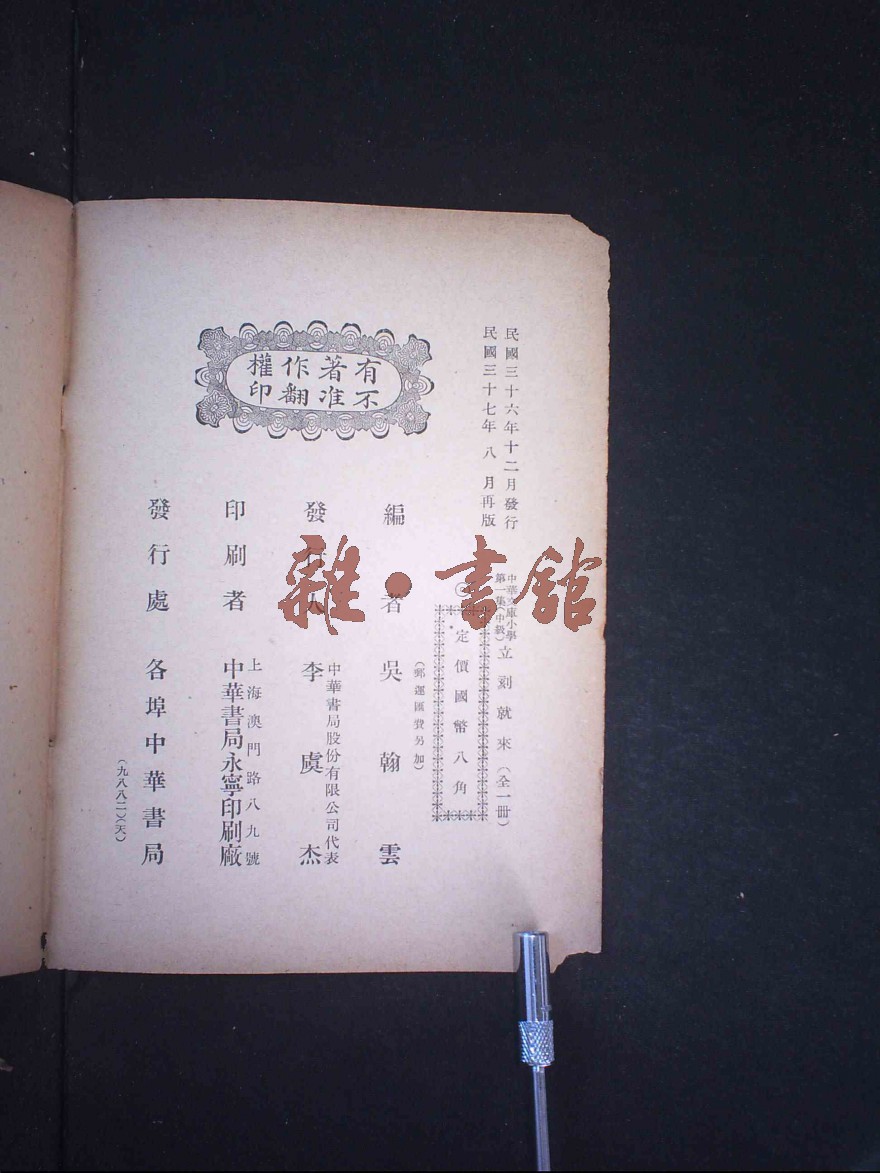 民國三十六年十二月發行
民國三十七年八月再版
中華文庫小學
第一集(中級)
立刻就來(全一冊)
定價國幣八角
(郵運匯費另加)
有著作權
不准翻印
編者 吳翰雲
發行人 李虞杰
中華書局股份有限公司代表
印刷者
上海澳門路八九號
中華書局永寧印刷廠
發行處 各埠中華書局
(九八八二)(天)
雜·書館